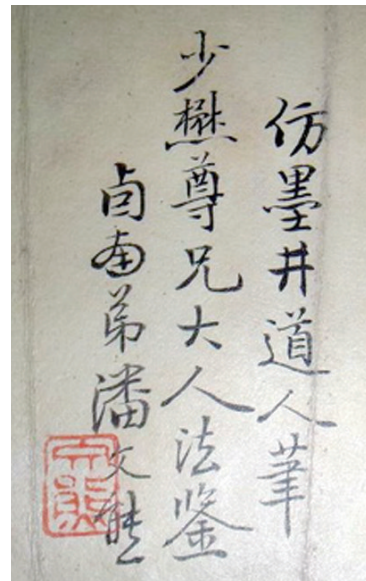 仿墨井道人筆
少懋尊兄大人法鑒
卣南弟潘文熊
文熊